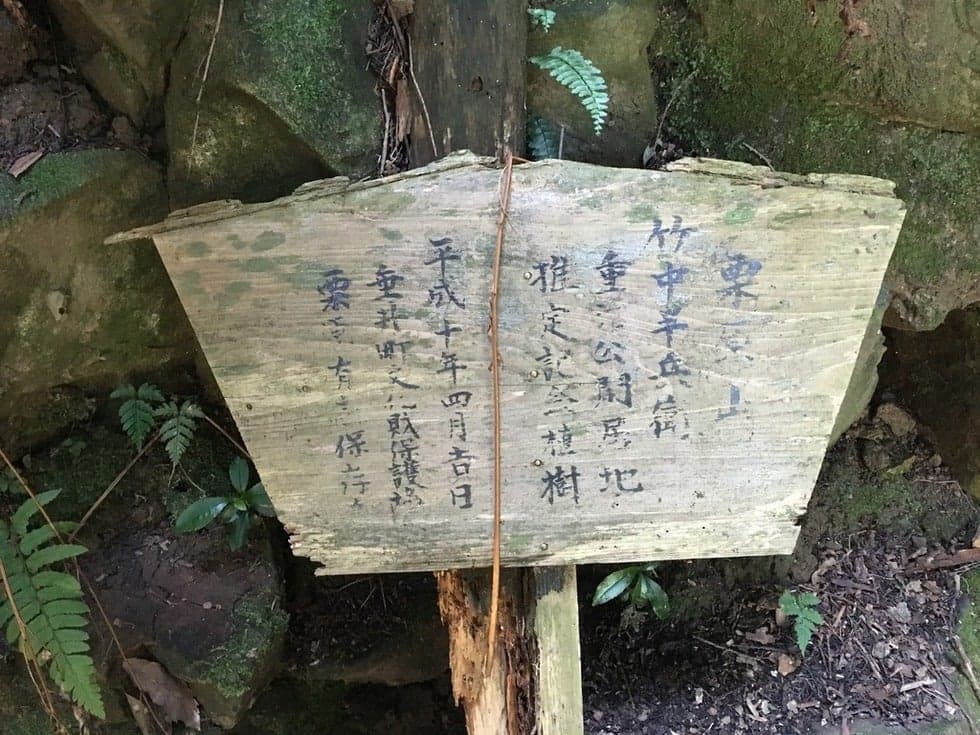 栗原山
竹中半兵衛
重治公閑居地
推定記念植樹
平成十年四月吉日
垂井町文化財保護協
栗原 有志 保存